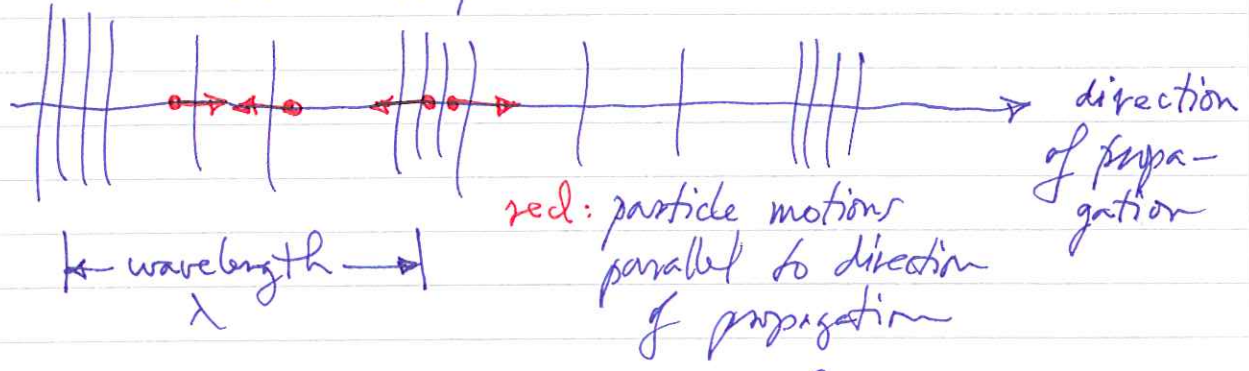 direction
of propa-
gation
red: particle motions
parallel to direction
of propagation
wavelength
λ